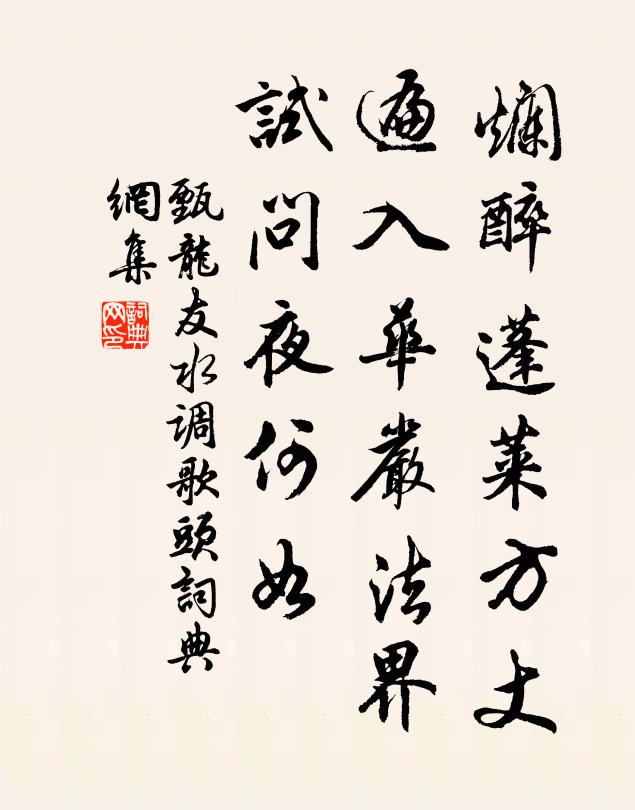 爛醉蓬萊方丈
遍入華嚴法界
試問夜何如
甄龍友水调歌頭詞典
網集
詞典
网印